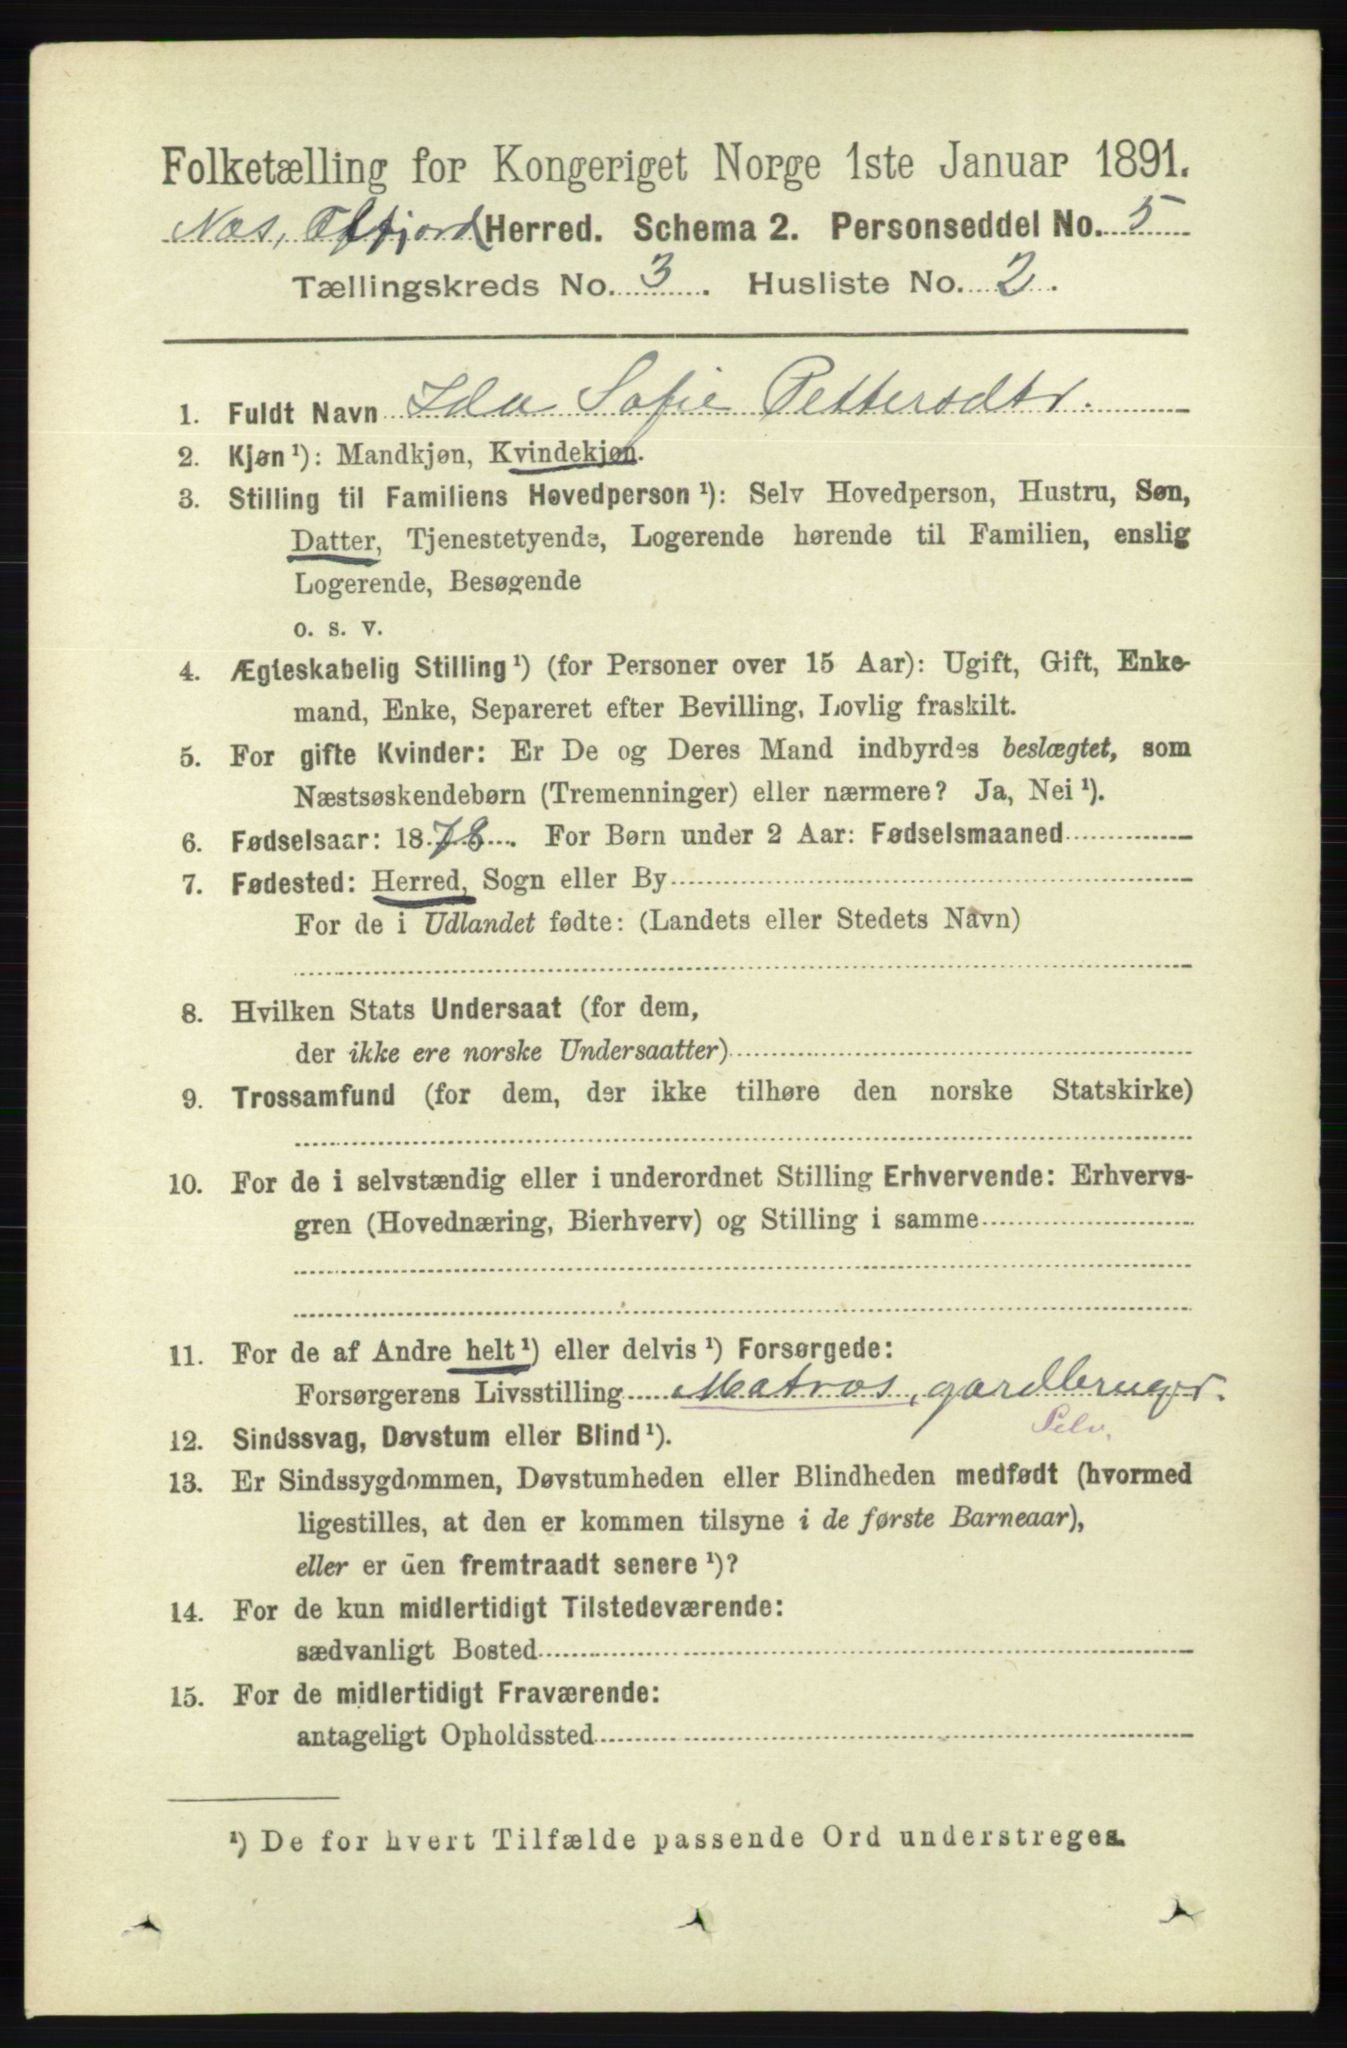 Folketælling for Kongeriget Norge 1ste Januar 1891.
Næs, Herred. Schema 2. Personseddel No. 5
Tællingskreds No. 3. Husliste No. 2.
1. Fuldt Navn Ida Sofie Pettersdtr.
2. Kjøn¹): Mandkjøn, Kvindekjøn.
3. Stilling til Familiens Hovedperson¹): Selv Hovedperson, Hustru, Søn,
Datter, Tjenestetyende, Logerende hørende til Familien, enslig
Logerende, Besøgende
o. s. v.
4. Ægteskabelig Stilling¹) (for Personer over 15 Aar): Ugift, Gift, Enke-
mand, Enke, Separeret efter Bevilling, Lovlig fraskilt.
5. For gifte Kvinder: Er De og Deres Mand indbyrdes beslægtet, som
Næstsøskendebørn (Tremenninger) eller nærmere? Ja, Nei¹).
6. Fødselsaar: 1878. For Børn under 2 Aar: Fødselsmaaned
7. Fødested: Herred, Sogn eller By
For de i Udlandet fødte: (Landets eller Stedets Navn)
8. Hvilken Stats Undersaat (for dem,
der ikke ere norske Undersaatter)
9. Trossamfund (for dem, der ikke tilhøre den norske Statskirke)
10. For de i selvstændig eller i underordnet Stilling Erhvervende: Erhvervs-
gren (Hovednæring, Bierhverv) og Stilling i samme
11. For de af Andre helt¹) eller delvis¹) Forsørgede:
Forsørgerens Livsstilling Matros, gardbruger.
Selv.
12. Sindssvag, Døvstum eller Blind¹).
13. Er Sindssygdommen, Døvstumheden eller Blindheden medfødt (hvormed
ligestilles, at den er kommen tilsyne i de første Barneaar),
eller er den fremtraadt senere¹)?
14. For de kun midlertidigt Tilstedeværende:
sædvanligt Bosted
15. For de midlertidigt Fraværende:
antageligt Opholdssted
¹) De for hvert Tilfælde passende Ord understreges.